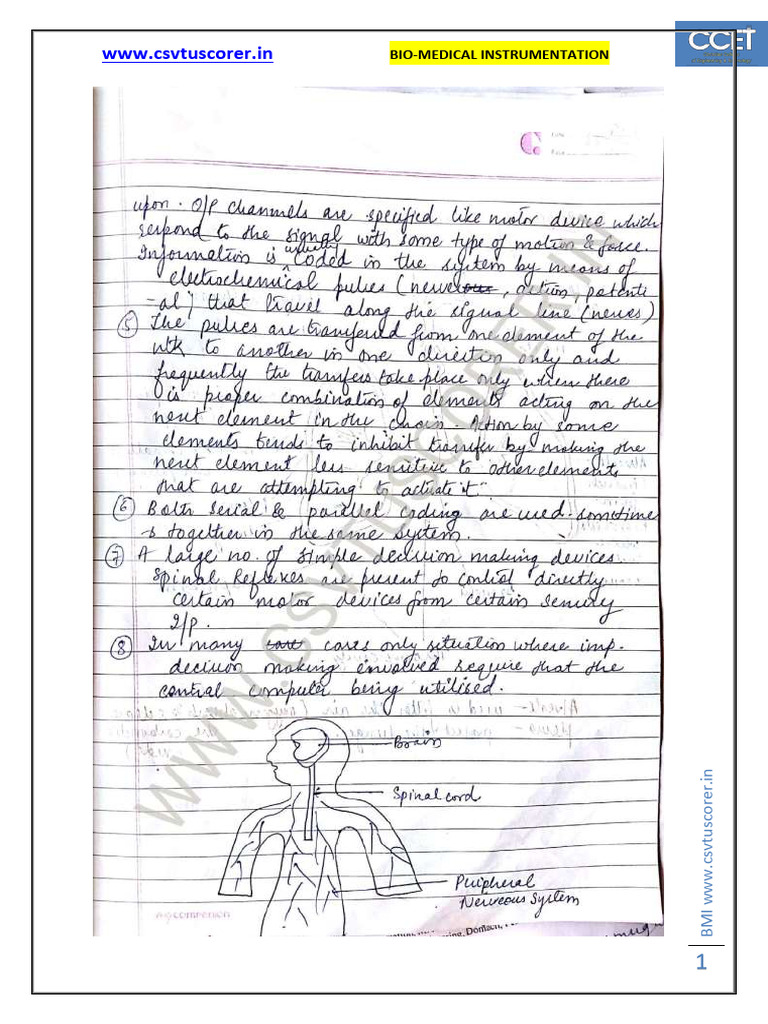 www.csvtuscorer.in
BIO-MEDICAL INSTRUMENTATION
CCET
upon. O/P channels are specified like motor device which
respond to the signal with some type of motion & force.
Information is usually coded in the system by means of
electrochemical pulses (nerve, action, potenti
-al) that travel along the signal line (nerves)
(5) The pulses are transferred from one element of the
n/tk to another in one direction only and
frequently the transfers take place only when there
is proper combination of elements acting on the
next element in the chain. Action by some
elements tends to inhibit transfer by making the
next element less sensitive to other elements
that are attempting to actuate it.
(6) Both serial & parallel coding are used sometime
-s together in the same system.
(7) A large no. of simple decision making devices
Spinal Reflexes are present to control directly
certain motor devices from certain sensory
I/p.
(8) In many cases only situation where imp.
decision making involved require that the
central computer being utilised.
Brain
Spinal cord
Peripheral
Nerveous System
www.csvtuscorer.in
BMI www.csvtuscorer.in
1